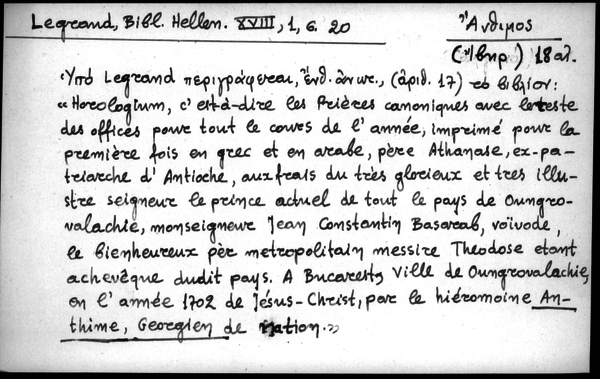 Legrand, Bibl. Hellen. XVIII, 1, σ. 20
Ἄνθιμος
(Ἴβηρ) 18 αἰ.
Ὑπό Legrand περιγράφεται, ἔνθ. ἀνωτ., (ἀριθ. 17) το βιβλίον:
"Horologium, c' est-à-dire les Prières canoniques avec le teste
des offices pour tout le cours de l' année, imprimé pour la
première fois en grec et en arabe, père Athanase, ex-pa-
triarche d' Antioche, aux frais du très glorieux et tres illu-
stre seigneur le prince actuel de tout le pays de Oungro-
valachie, monseigneur Jean Constantin Basarab, voïvode,
le bienheureux pèr metropolitain messire Theodose etant
achevêque dudit pays. A Bucarest, ville de Oungrovalachie,
en l' année 1702 de Jésus-Christ, par le hiéromoine An-
thime, Georgien de nation.»